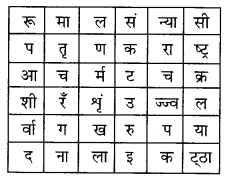 रू मा ल सं न्या सी
प तृ ण क रा ष्ट्र
आ च र्म ट च क्र
शी रँ शृं उ ज्ज्व ल
र्वा ग ख रु प या
द ना ला इ क ट्ठा